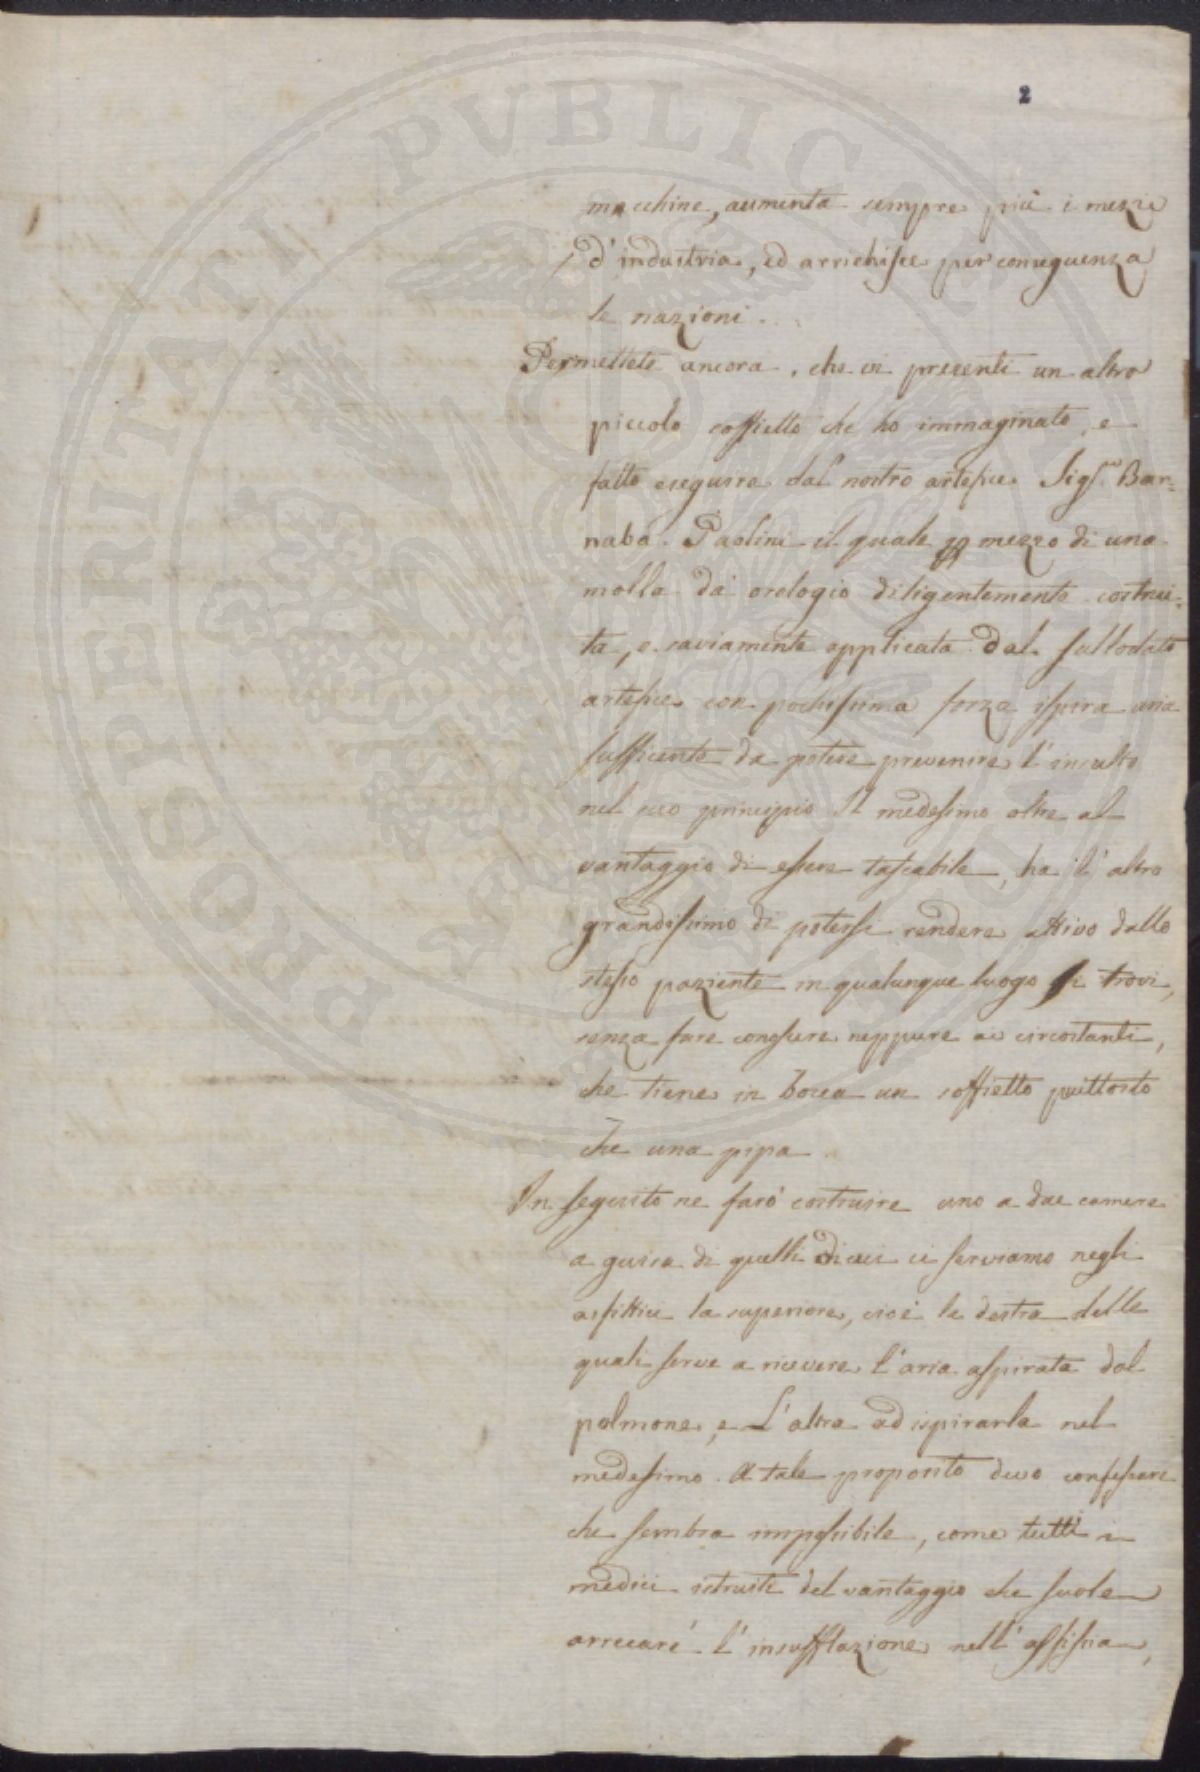 PROSPERITATI PVBLICAE
2
macchine, aumenta sempre più i mezzi
d'industria, ed arrichisce per conseguenza
le nazioni.
Permettete ancora, che vi presenti un altro
piccolo soffietto che ho immaginato, e
fatto eseguire dal nostro artefice Sig.r Bar=
naba Paolini il quale per mezzo di una
molla da orologio diligentemente costrui=
ta, e saviamente applicata dal sullodato
artefice con pochissima forza ispira aria
sufficiente da potere prevenire l'insulto
nel suo principio Il medesimo oltre al
vantaggio di essere tascabile, ha l'altro
grandissimo di potersi rendere attivo dallo
stesso paziente in qualunque luogo si trovi,
senza fare conoscere neppure ai circostanti,
che tiene in bocca un soffietto piuttosto
che una pipa
In seguito ne farò costruire uno a due camere
a guisa di quelli di cui ci serviamo negli
asfittici la superiore, cioè la destra delle
quali serve a ricevere l'aria aspirata dal
polmone, e L'altra ad ispirarla nel
medesimo. A tale proposito devo confessare
che sembra impossibile, come tutti i
medici istruiti del vantaggio che suole
arrecare l'insufflazione nell'assfisia,